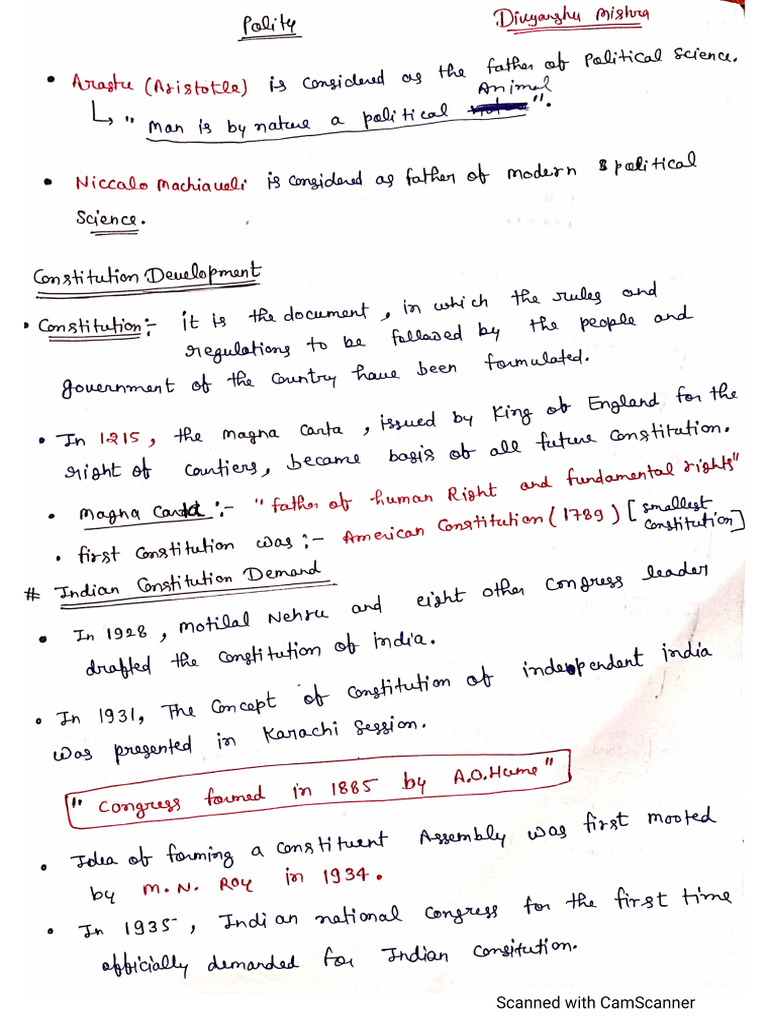 Polity
Divyanshu Mishra
• Arastu (Aristotle) is considered as the father of political science.
Animal
↳ " Man is by nature a political ".
• Niccalo Machiaveli is considered as father of modern political
Science.
Constitution Development
• Constitution:- it is the document, in which the rules and
regulations to be followed by the people and
government of the country have been formulated.
• In 1215, the magna carta, issued by King of England for the
right of countiers, became basis of all future constitution.
• Magna Carta :- "father of human Right and fundamental rights"
• first constitution was :- American Constitution (1789) [smallest
constitution]
# Indian Constitution Demand
• In 1928, Motilal Nehru and eight other congress leader
drafted the constitution of india.
• In 1931, The concept of constitution of independent india
was presented in Karachi Session.
" Congress formed in 1885 by A.O.Hume "
• Idea of forming a constituent Assembly was first mooted
by M.N. Roy in 1934.
• In 1935, Indian national congress for the first time
officially demanded for Indian Consitution.
Scanned with CamScanner